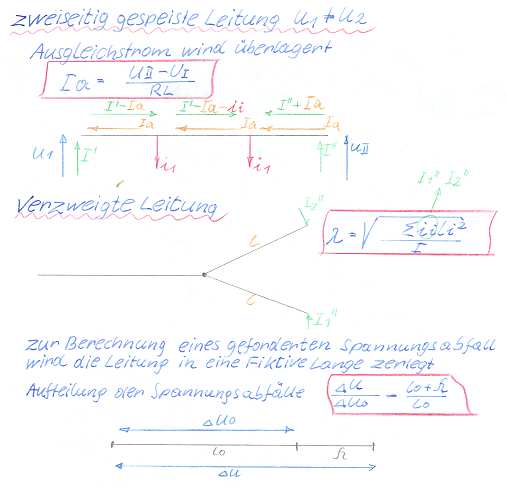 zweiseitig gespeiste Leitung U1 ≠ U2
Ausgleichstrom wird überlagert
Ia = (UII − UI) / RL
I'-Ia I'-Ia-ii I"+Ia
Ia Ia Ia
U1 I' i1 i1 I" UII
I1" I2"
Verzweigte Leitung I2"
λ = √ Σii li² / I
l
l
I1"
zur Berechnung eines geforderten Spannungsabfall
wird die Leitung in eine Fiktive Länge zerlegt
Aufteilung der Spannungsabfälle ΔU / ΔU0 = (l0 + λ) / l0
ΔU0
l0 λ
ΔU